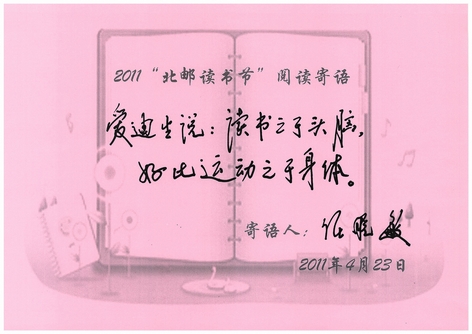 2011“北邮读书节”阅读寄语
爱迪生说：读书之于头脑，
好比运动之于身体。
寄语人：任晓敏
2011年4月23日